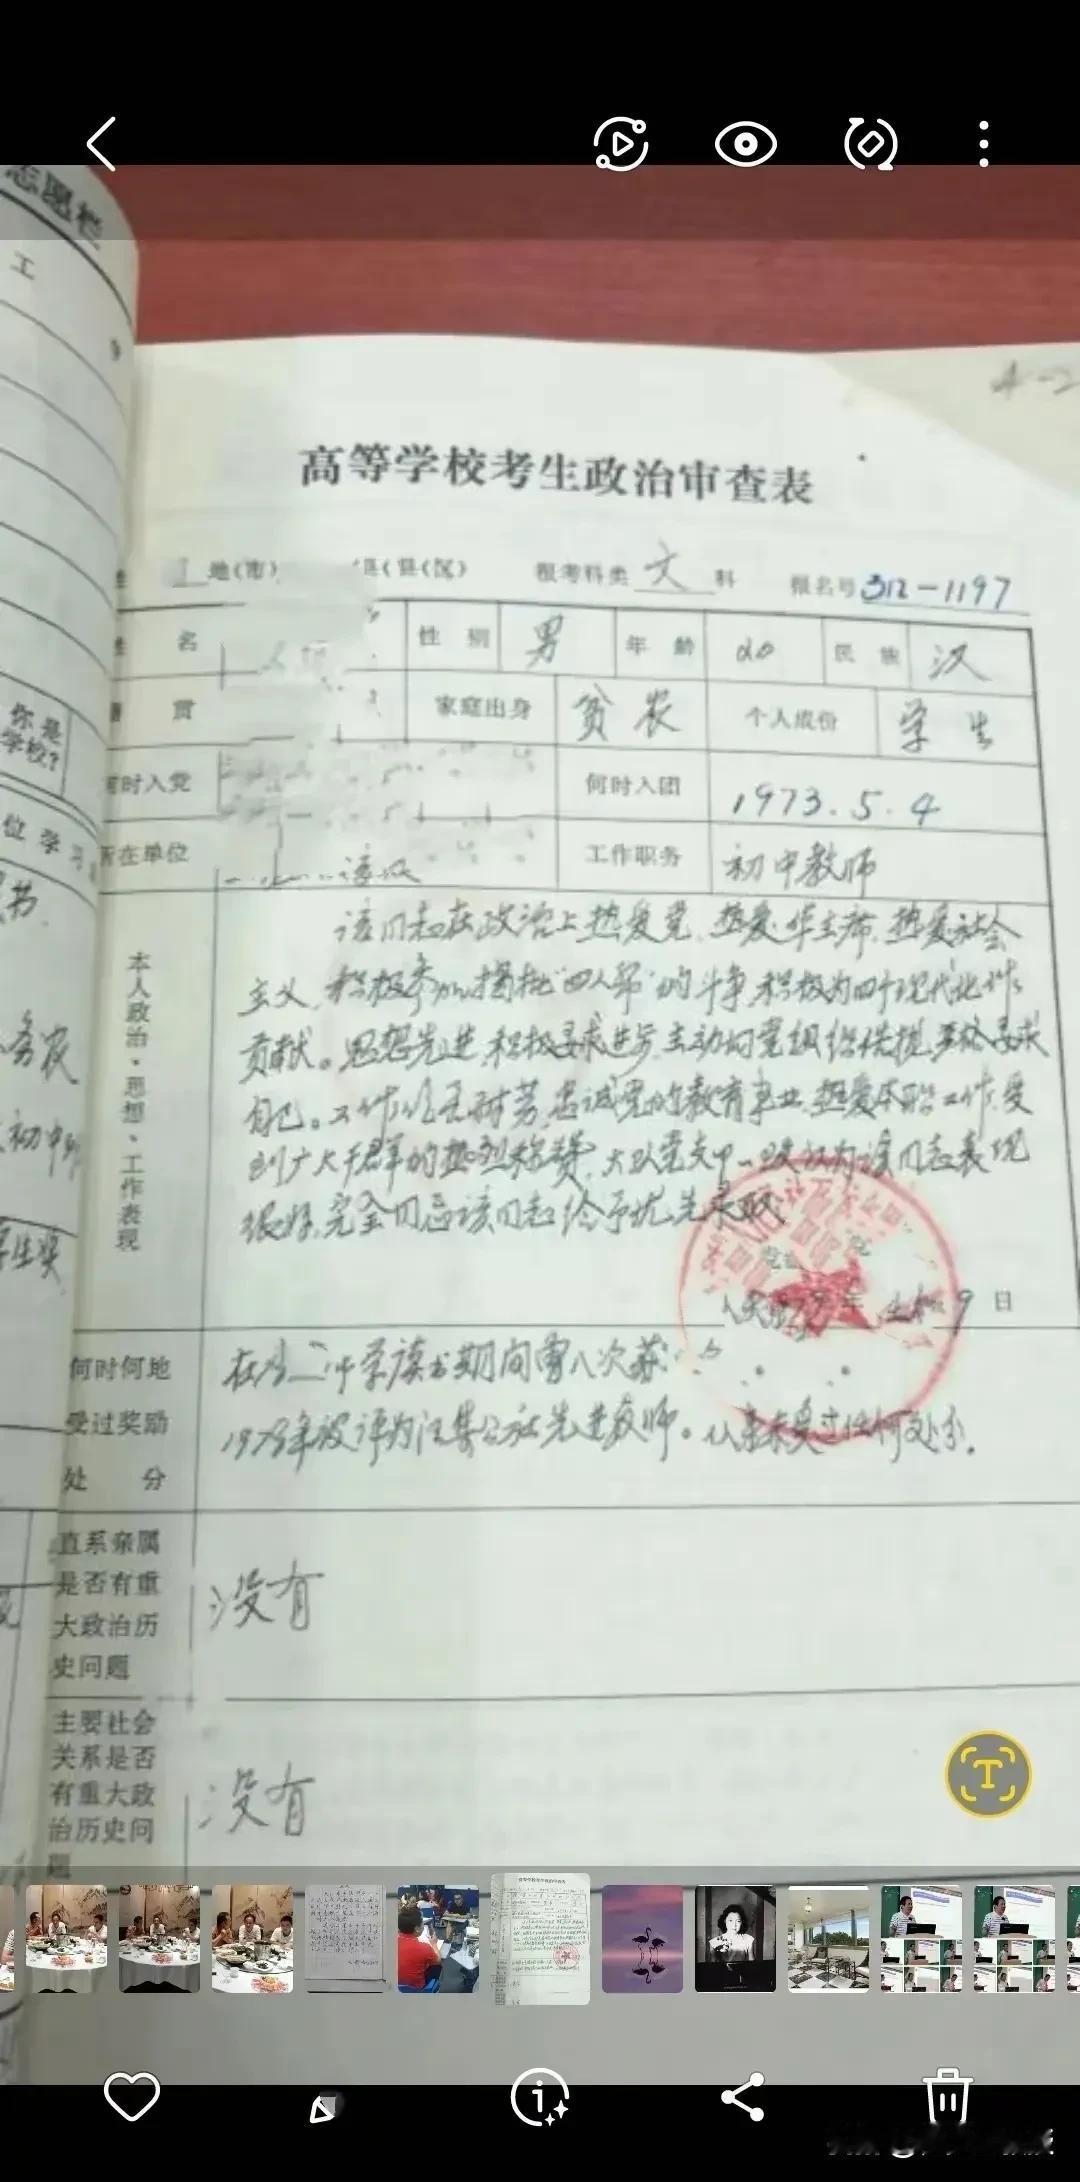 志愿栏
工
4-2
高等学校考生政治审查表
地(市) 县(区) 报考科类 文 科 报名号 312-1197
名 性别 男 年龄 20 民族 汉
贯 家庭出身 贫农 个人成份 学生
何时入党 何时入团 1973.5.4
所在单位 工作职务 初中教师
你是
学校?
位学习
务农
初中
本人政治·思想·工作表现
该同志在政治上热爱党、热爱华主席、热爱社会
主义,积极参加揭批"四人帮"的斗争,积极为四个现代化作
贡献。思想先进,积极要求进步,主动向党组织靠拢,严格要求
自己。工作任劳耐劳,忠诚党的教育事业,热爱本职工作,受
到广大干群的热烈称赞,大队党支部一致认为该同志表现
很好,完全同意该同志给予优先录取
年 9 日
何时何地
受过奖励
处 分
在 二中学读书期间曾八次获
年被评为汪集公社先进教师。从来未受过任何处分。
直系亲属
是否有重
大政治历
史问题
没有
主要社会
关系是否
有重大政
治历史问
题
没有
T